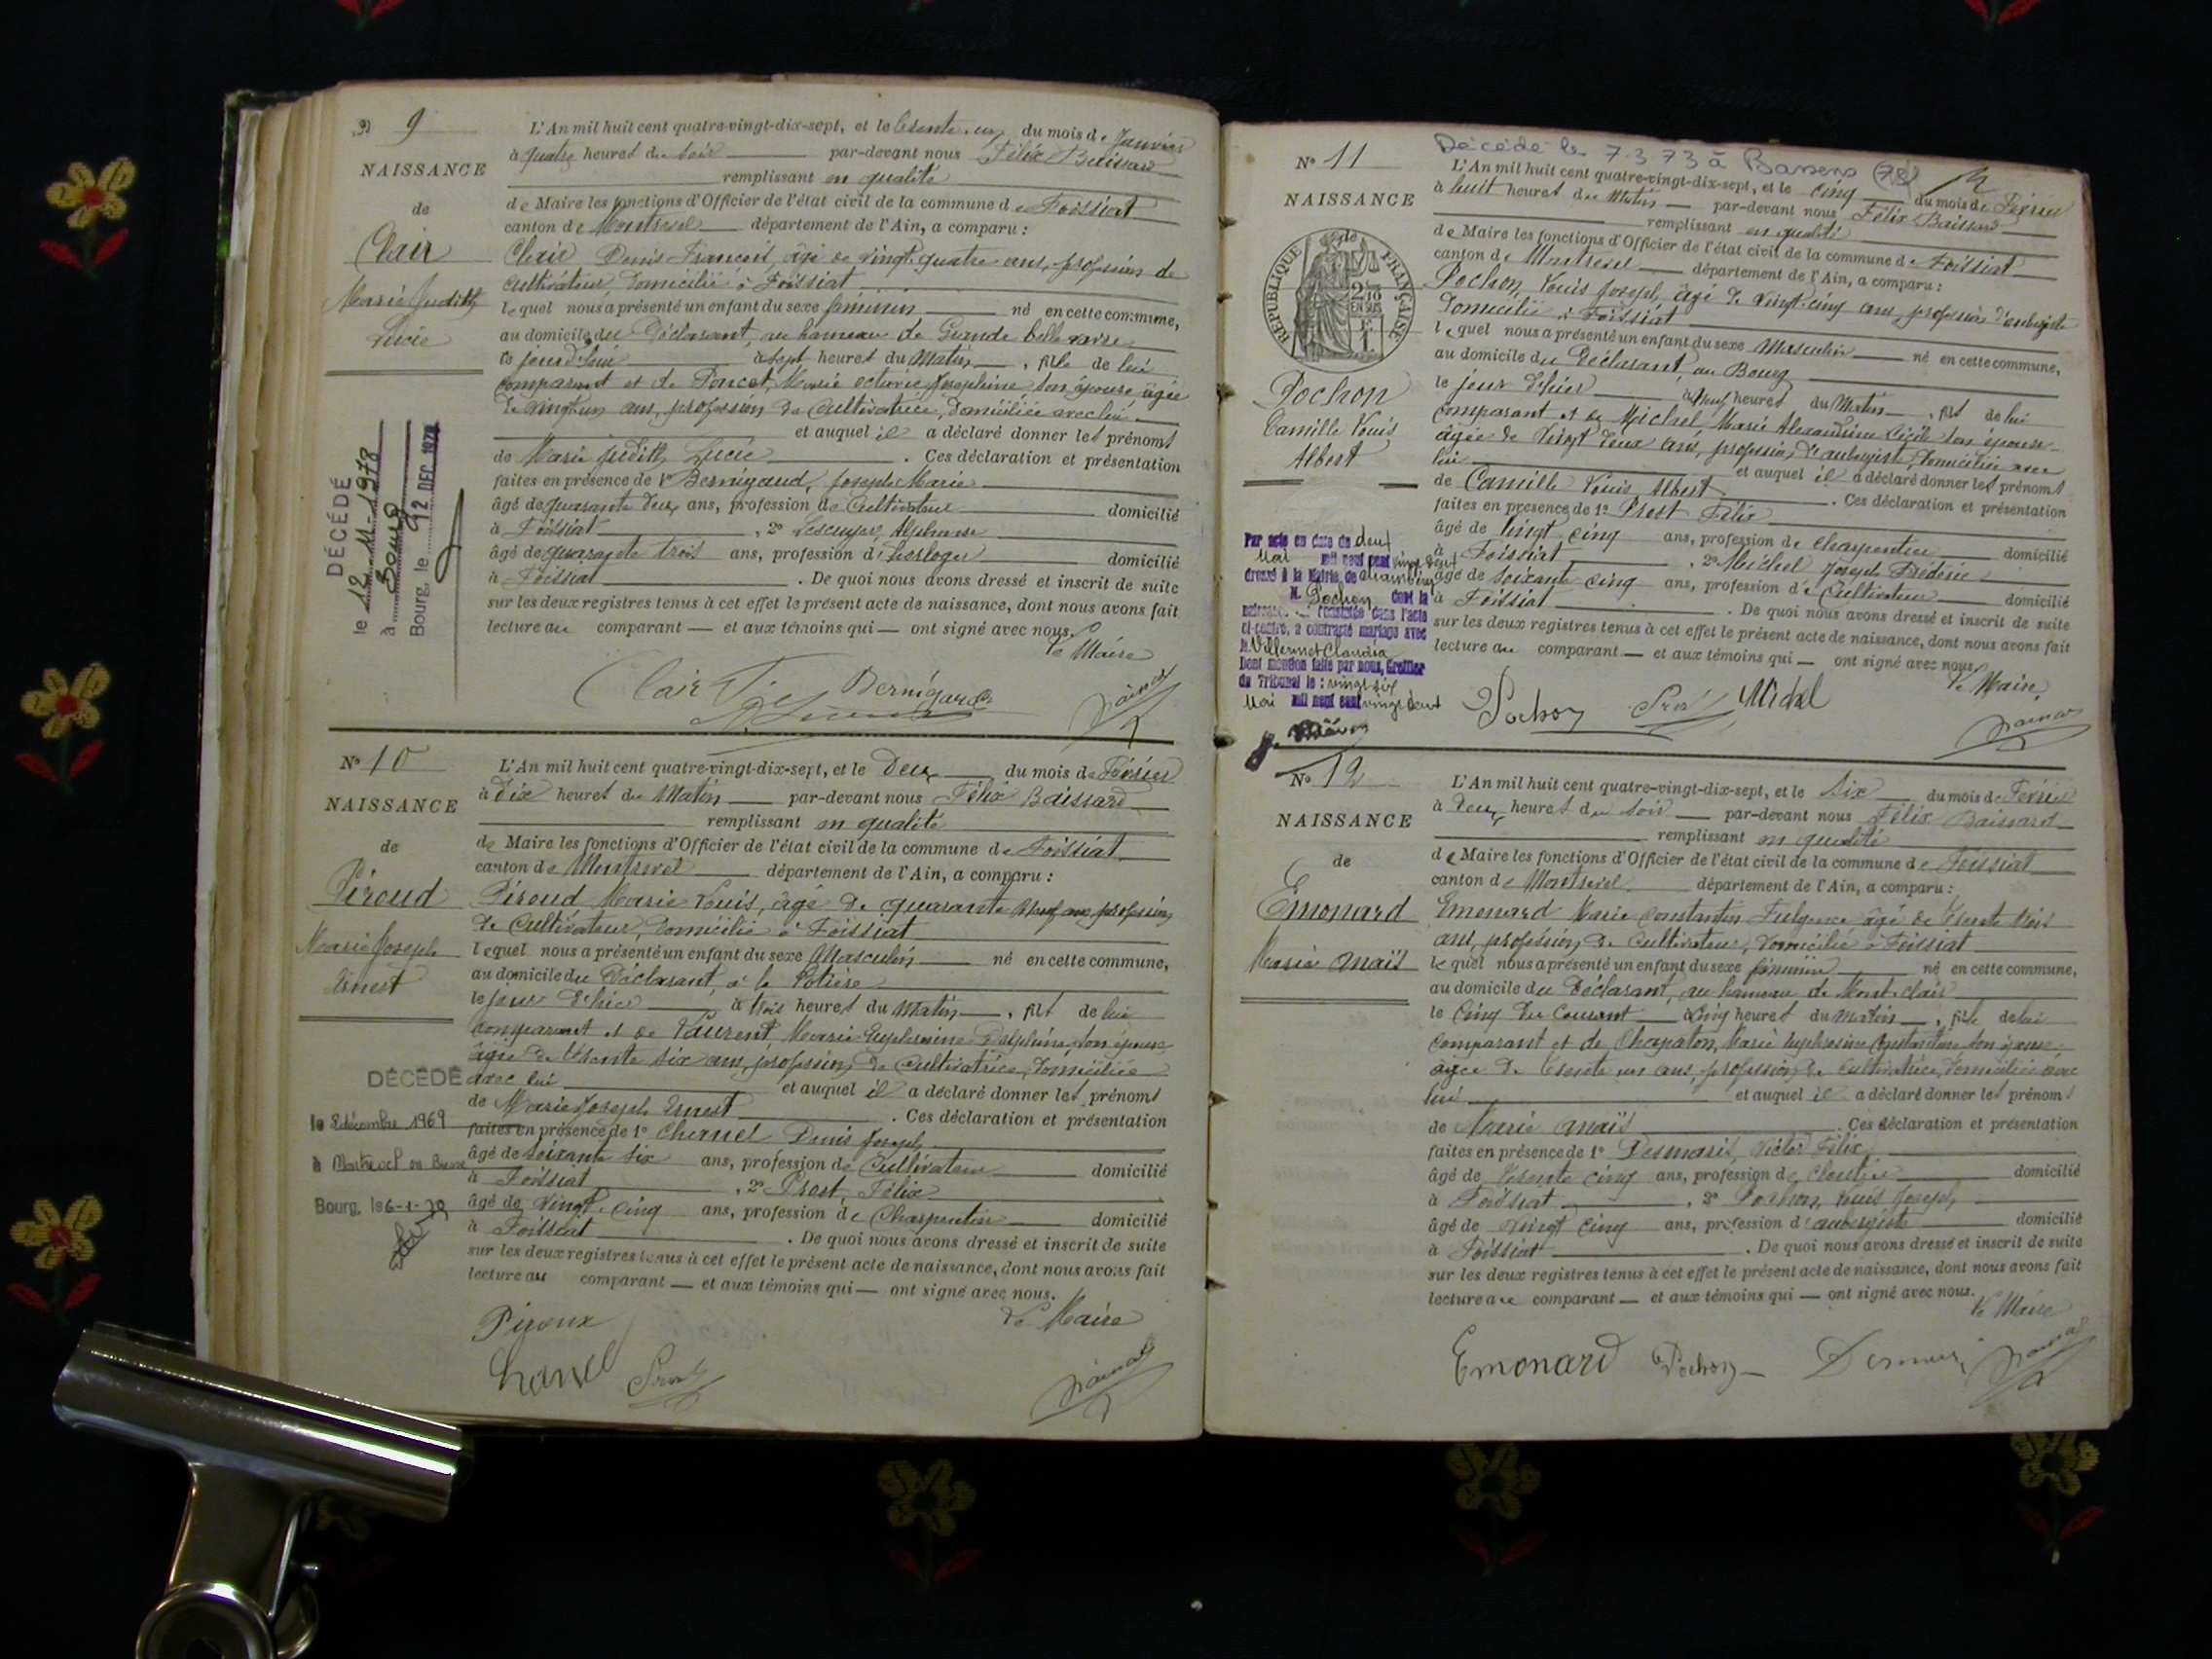 9
NAISSANCE
de
Clair
Marie Judith
Lucie
DÉCÉDÉ
le 12-11-1978
à Bourg
Bourg, le 12 DEC. 1978
L'An mil huit cent quatre-vingt-dix-sept, et le trente-un du mois de Janvier
à quatre heures du soir par-devant nous Félix Baissard
remplissant en qualité
de Maire les fonctions d'Officier de l'état civil de la commune de Foissiat
canton de Montrevel département de l'Ain, a comparu :
Clair Denis François, âgé de vingt-quatre ans, profession de
cultivateur, domicilié à Foissiat
lequel nous a présenté un enfant du sexe féminin né en cette commune,
au domicile du Déclarant, au hameau de Grande
ce jourd'hui à sept heures du Matin, fille de lui
comparant et de Poncet, Marie Octavie Josephine, son épouse âgée
de vingt-un ans, profession de Cultivatrice, domiciliée avec lui
et auquel il a déclaré donner les prénoms
de Marie Judith Lucie. Ces déclaration et présentation
faites en présence de 1° Bernigaud, Joseph Marie
âgé de quarante deux ans, profession de Cultivateur domicilié
à Foissiat, 2° Lescuyer, Alphonse
âgé de quarante trois ans, profession d'horloger domicilié
à Foissiat. De quoi nous avons dressé et inscrit de suite
sur les deux registres tenus à cet effet le présent acte de naissance, dont nous avons fait
lecture au comparant — et aux témoins qui — ont signé avec nous.
Le Maire
Clair Bernigaud
N° 10
NAISSANCE
de
Piroud
Marie Joseph
Ernest
DÉCÉDÉ
le 8 décembre 1969
à Montrevel en Bresse
Bourg, le 6-1-70
L'An mil huit cent quatre-vingt-dix-sept, et le Deux du mois de Février
à dix heures du Matin par-devant nous Félix Baissard
remplissant en qualité
de Maire les fonctions d'Officier de l'état civil de la commune de Foissiat
canton de Montrevel département de l'Ain, a comparu :
Piroud Marie Louis, âgé de quarante neuf ans, profession
de Cultivateur, domicilié à Foissiat
lequel nous a présenté un enfant du sexe Masculin né en cette commune,
au domicile du Déclarant, à la Potière
le jour d'hier à trois heures du Matin, fils de lui
comparant et de Laurent, Marie Euphrosine Delphine, son épouse
âgée de trente six ans, profession de Cultivatrice, domiciliée
avec lui et auquel il a déclaré donner les prénoms
de Marie Joseph Ernest. Ces déclaration et présentation
faites en présence de 1° Chanel Denis Joseph
âgé de soixante six ans, profession de Cultivateur domicilié
à Foissiat, 2° Prost, Félix
âgé de vingt-cinq ans, profession de Charpentier domicilié
à Foissiat. De quoi nous avons dressé et inscrit de suite
sur les deux registres tenus à cet effet le présent acte de naissance, dont nous avons fait
lecture au comparant — et aux témoins qui — ont signé avec nous.
Piroux Le Maire
Chanel Prost
Décédé le 7.3.73 à Bassens (73)
N° 11
NAISSANCE
de
RÉPUBLIQUE FRANÇAISE
Pochon
Camille Louis
Albert
Par acte en date du deux
Mai mil neuf cent vingt deux
dressé à la Mairie de Chambéry
M. Pochon dont la
naissance constatée dans l'acte
ci-contre, a contracté mariage avec
Villermet Claudia
Dont mention faite par nous, Greffier
du Tribunal le : vingt six
Mai mil neuf cent vingt deux
L'An mil huit cent quatre-vingt-dix-sept, et le cinq du mois de Février
à huit heures du Matin — par-devant nous Félix Baissard
remplissant en qualité
de Maire les fonctions d'Officier de l'état civil de la commune de Foissiat
canton de Montrevel département de l'Ain, a comparu :
Pochon, Louis Joseph, âgé de vingt-cinq ans, profession d'aubergiste
domicilié à Foissiat
lequel nous a présenté un enfant du sexe Masculin né en cette commune,
au domicile du Déclarant, au Bourg
le jour d'hier à neuf heures du Matin, fils de lui
comparant et de Michel, Marie Alexandrine Cécile son épouse
âgée de vingt deux ans, profession d'aubergiste, domiciliée avec
lui et auquel il a déclaré donner les prénoms
de Camille Louis Albert. Ces déclaration et présentation
faites en présence de 1° Prost Félix
âgé de vingt cinq ans, profession de charpentier domicilié
à Foissiat, 2° Michel Joseph Frédéric
âgé de soixante cinq ans, profession de Cultivateur domicilié
à Foissiat. De quoi nous avons dressé et inscrit de suite
sur les deux registres tenus à cet effet le présent acte de naissance, dont nous avons fait
lecture au comparant — et aux témoins qui — ont signé avec nous.
Le Maire
Pochon Prost Michel
N° 12
NAISSANCE
de
Emonard
Marie Maïs
L'An mil huit cent quatre-vingt-dix-sept, et le Six du mois de Février
à deux heures du soir — par-devant nous Félix Baissard
remplissant en qualité
de Maire les fonctions d'Officier de l'état civil de la commune de Foissiat
canton de Montrevel département de l'Ain, a comparu :
Emonard Marie Constantin Fulgence âgé de trente trois
ans, profession de Cultivateur, domicilié à Foissiat
lequel nous a présenté un enfant du sexe féminin né en cette commune,
au domicile du Déclarant, au hameau de Mont-clair
le cinq du Courant à cinq heures du matin, fille de lui
comparant et de Chapaton, Marie Euphrosine Constantine son épouse
âgée de trente un ans, profession de Cultivatrice, domiciliée avec
lui et auquel il a déclaré donner les prénoms
de Marie Maïs. Ces déclaration et présentation
faites en présence de 1° Desmaris, Victor Félix
âgé de trente cinq ans, profession de domicilié
à Foissiat, 2° Pochon, Louis Joseph,
âgé de vingt cinq ans, profession d'aubergiste domicilié
à Foissiat. De quoi nous avons dressé et inscrit de suite
sur les deux registres tenus à cet effet le présent acte de naissance, dont nous avons fait
lecture au comparant — et aux témoins qui — ont signé avec nous.
Le Maire
Emonard Pochon Desmaris